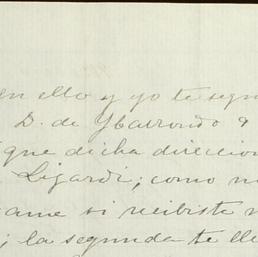 en ello y yo te segu
D. de Ybarrondo q
que dicha direccion
Ligardi; como m
ame si recibiste m
; la segunda te lle